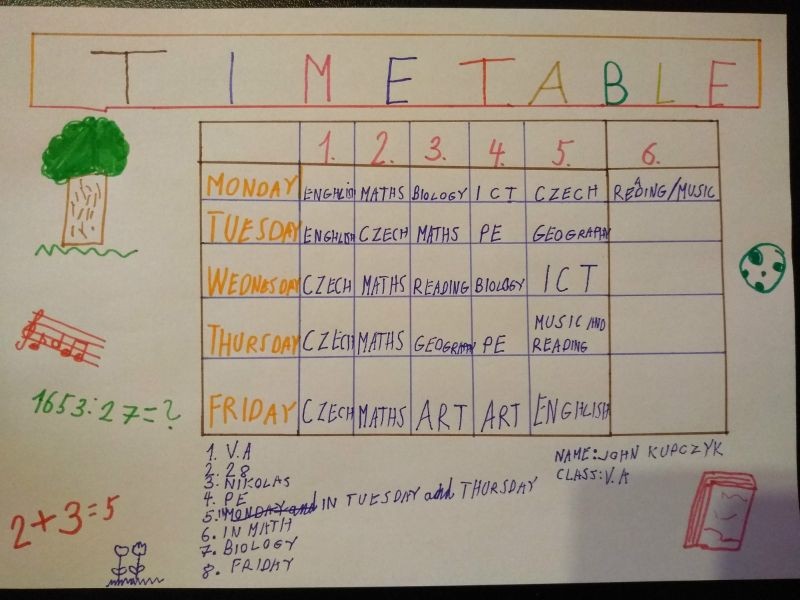 TIMETABLE
1. 2. 3. 4. 5. 6.
MONDAY ENGHLISH MATHS BIOLOGY ICT CZECH REDING/MUSIC
A
TUESDAY ENGHLISH CZECH MATHS PE GEOGRAPHY
WEDNESDAY CZECH MATHS READING BIOLOGY ICT
MUSIC AND
THURSDAY CZECH MATHS GEOGRAPHY PE READING
FRIDAY CZECH MATHS ART ART ENGHLISH
1653:27=?
2+3=5
1. V.A
2. 28
3. NIKOLAS
4. PE
5. MONDAY and IN TUESDAY and THURSDAY
6. IN MATH
7. BIOLOGY
8. FRIDAY
NAME: JOHN KUPCZYK
CLASS: V.A